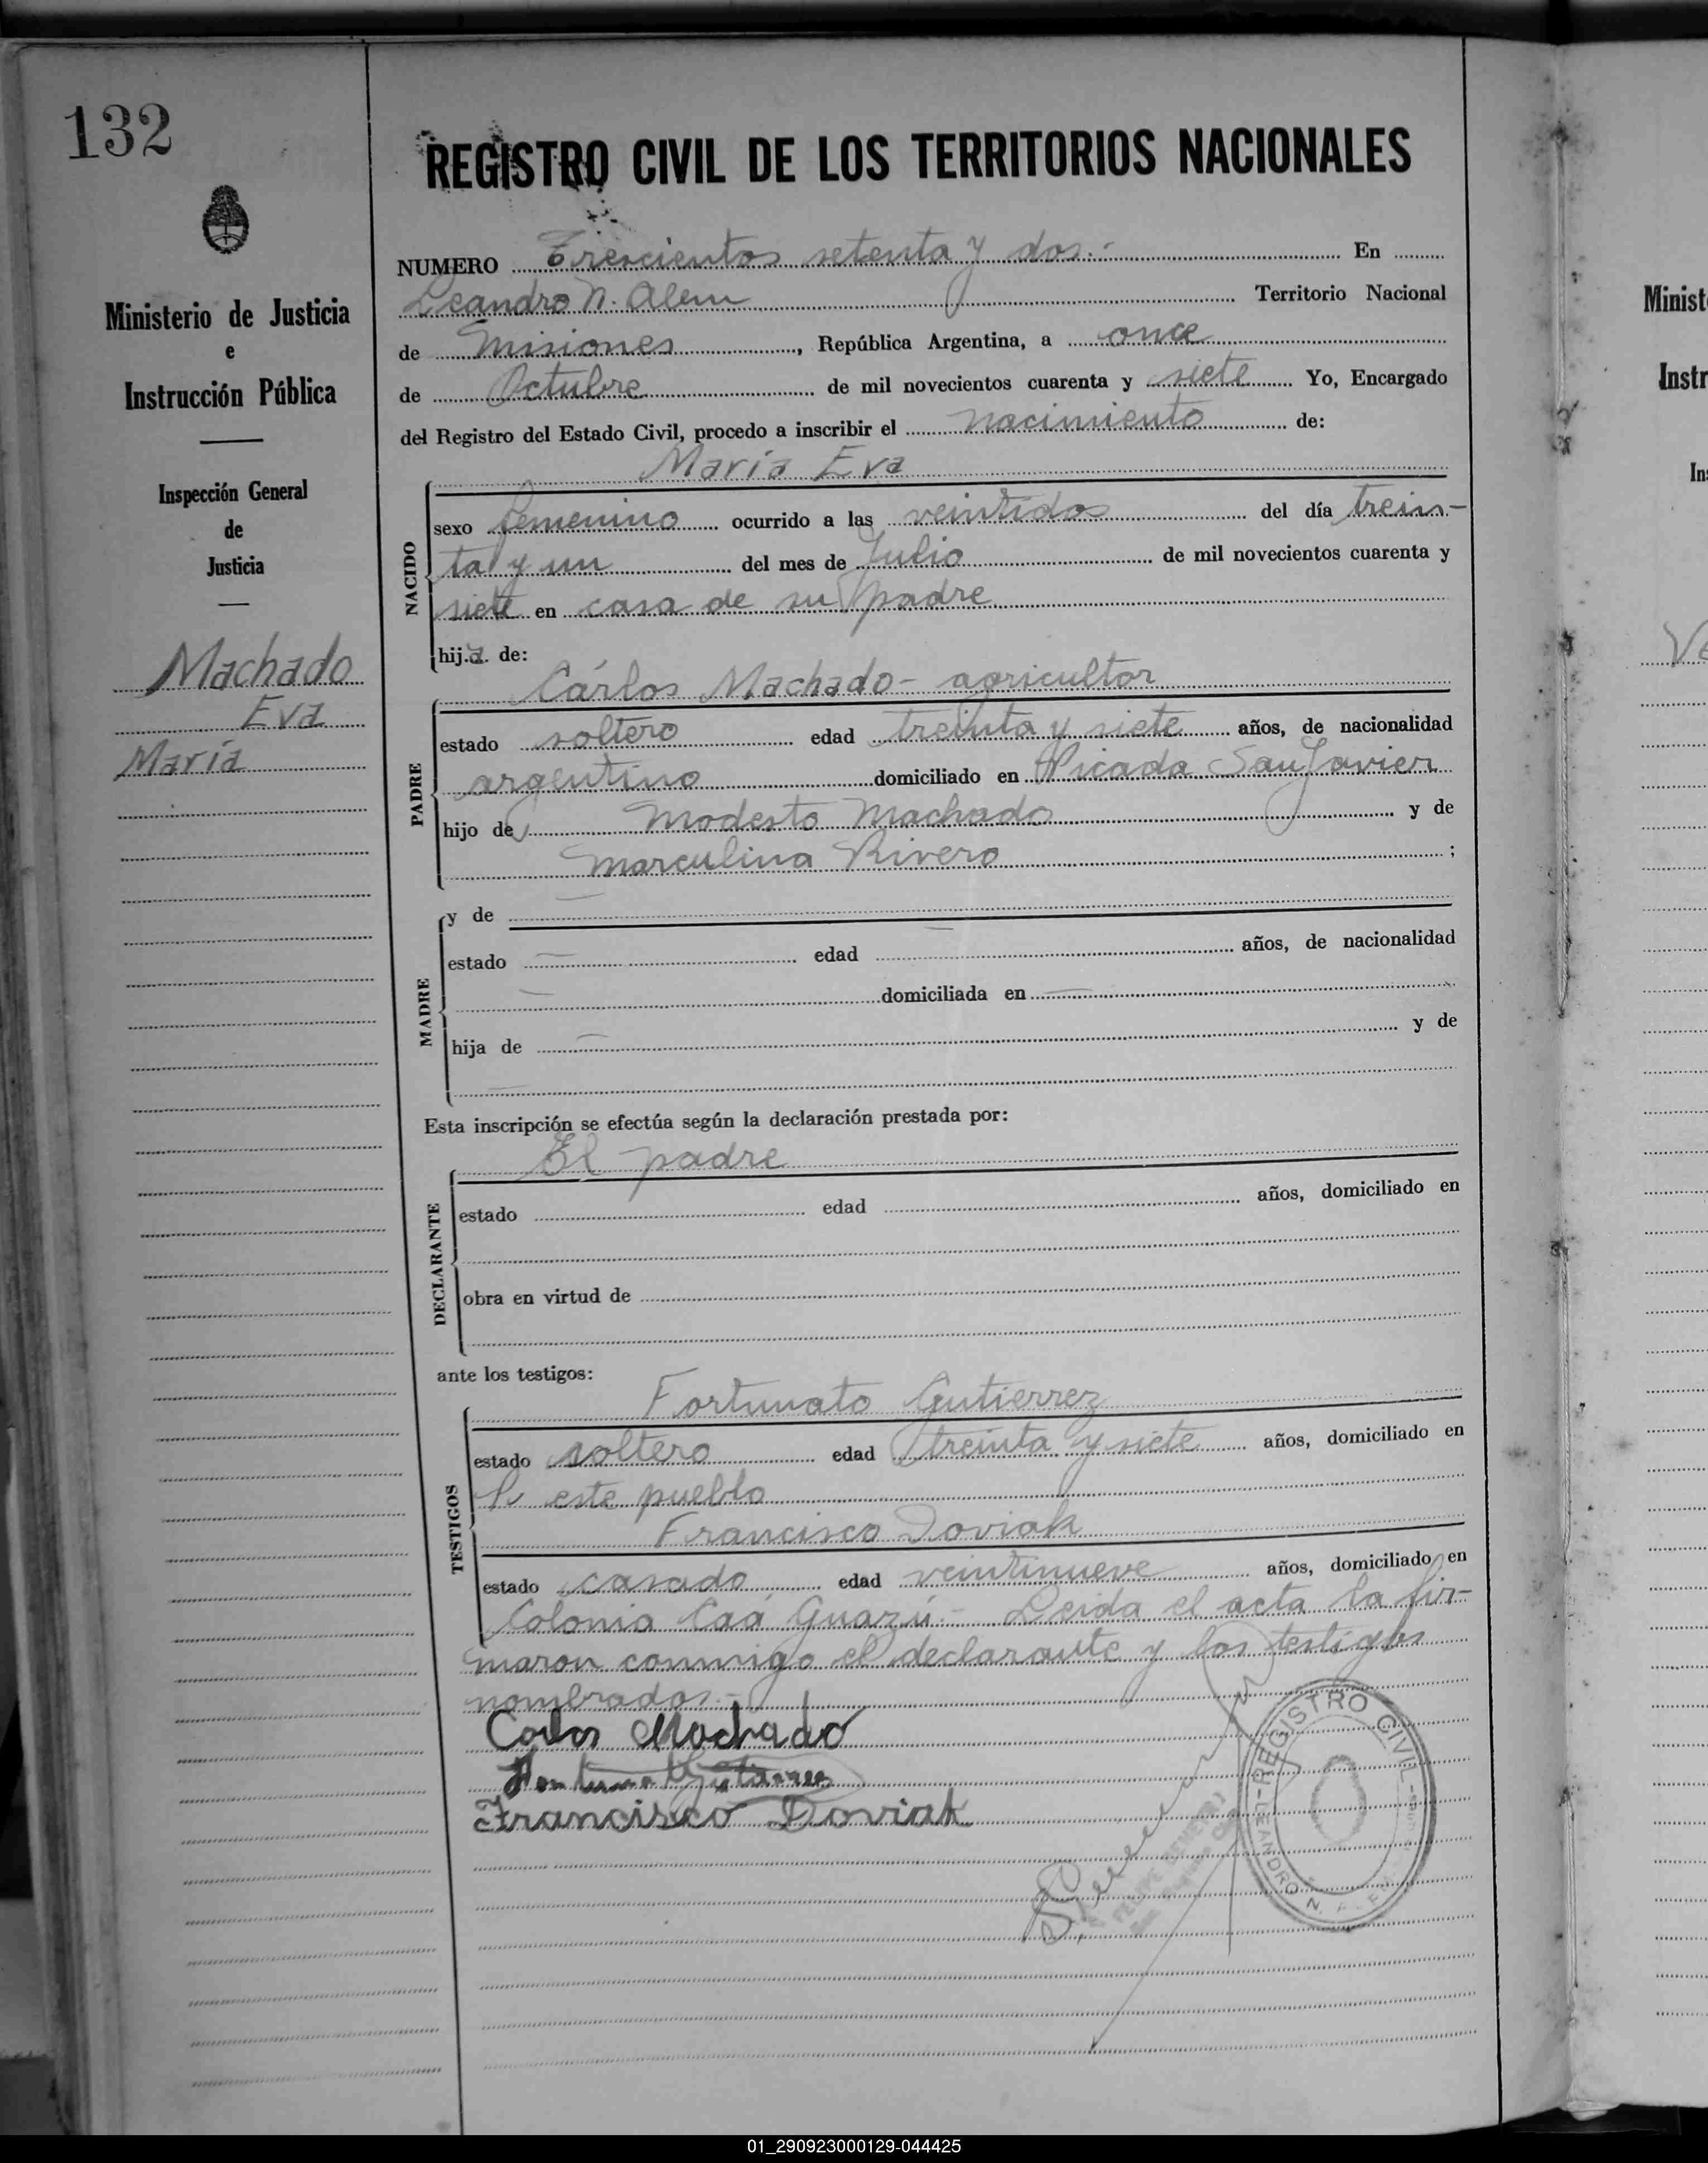 132
Ministerio de Justicia
e
Instrucción Pública
Inspección General
de
Justicia
Machado
Eva
María
REGISTRO CIVIL DE LOS TERRITORIOS NACIONALES
NUMERO Trescientos setenta y dos.- En
Leandro N. Alem Territorio Nacional
de Misiones, República Argentina, a once
de Octubre de mil novecientos cuarenta y siete Yo, Encargado
del Registro del Estado Civil, procedo a inscribir el nacimiento de:
María Eva
NACIDO
sexo femenino ocurrido a las veintidos del día trein-
ta y un del mes de Julio de mil novecientos cuarenta y
siete en casa de su padre
hija de:
Cárlos Machado- agricultor
PADRE
estado soltero edad treinta y siete años, de nacionalidad
argentino domiciliado en Picada San Javier
hijo de Modesto Machado y de
Marculina Rivero ;
MADRE
y de —
estado — edad — años, de nacionalidad
— domiciliada en —
hija de — y de
—
Esta inscripción se efectúa según la declaración prestada por:
El padre
DECLARANTE
estado edad años, domiciliado en
obra en virtud de
ante los testigos:
Fortunato Gutierrez
TESTIGOS
estado soltero edad treinta y siete años, domiciliado en
este pueblo
Francisco Doviak
estado casado edad veintinueve años, domiciliado en
Colonia Caá Guazú.- Leida el acta la fir-
maron conmigo el declarante y los testigos
nombrados.-
Carlos Machado
Francisco Doviak
REGISTRO CIVIL
LEANDRO N. ALEM
Minist
Instr
In
01_290923000129-044425